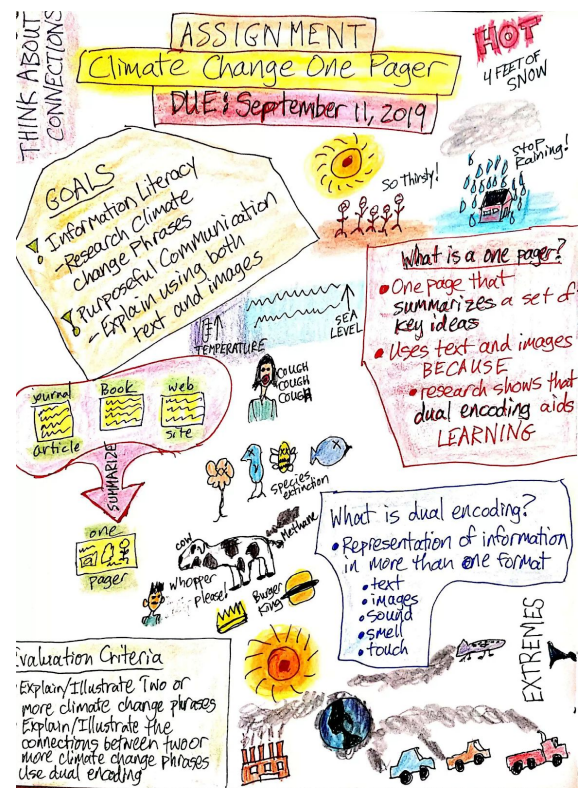 THINK ABOUT
CONNECTIONS
ASSIGNMENT
Climate Change One Pager
DUE: September 11, 2019
HOT
4 FEET OF
SNOW
GOALS
Information Literacy
-Research Climate
change Phrases
Purposeful Communication
- Explain using both
text and images
So Thirsty!
STOP
Raining!
What is a one pager?
One page that
summarizes a set of
key ideas
Uses text and images
BECAUSE
research shows that
dual encoding aids
LEARNING
TEMPERATURE
SEA
LEVEL
COUGH
COUGH
COUGH
journal
article
Book
web
site
SUMMARIZE
one
pager
species
extinction
cow
Methane
Whopper
please!
Burger
King
What is dual encoding?
Representation of information
in more than one format
text
images
sound
smell
touch
EXTREMES
Evaluation Criteria
Explain/Illustrate Two or
more climate change phrases
Explain/Illustrate the
connections between two or
more climate change phrases
Use dual encoding